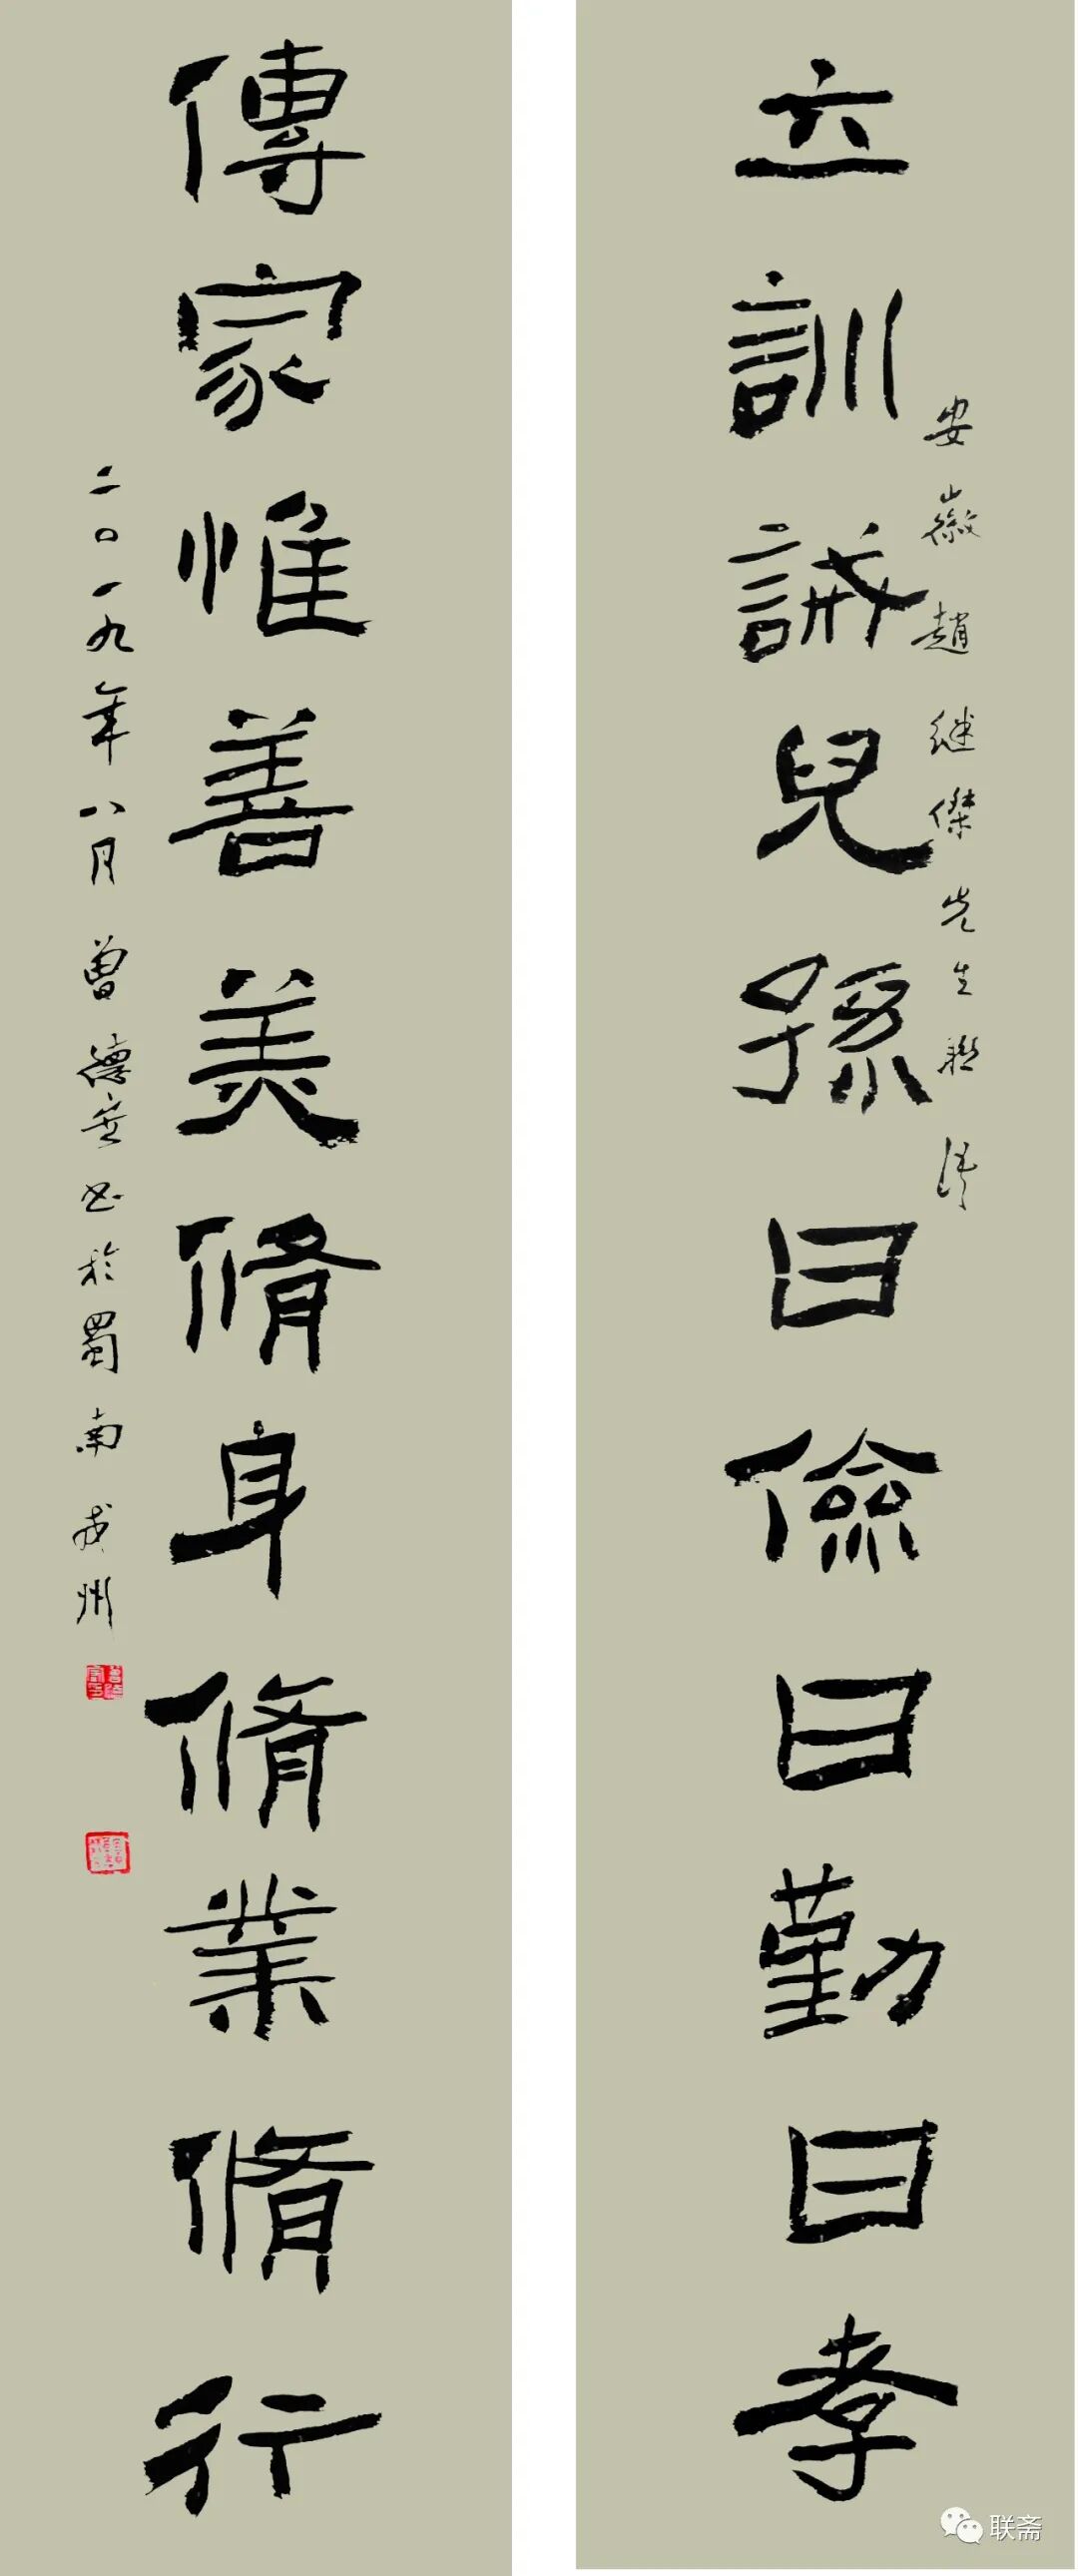 立訓誡兒孫曰儉曰勤曰孝
安徽趙继傑先生联語
傳家惟善美脩身脩業脩行
二〇一九年八月曾德安书於蜀南戎州
联斋